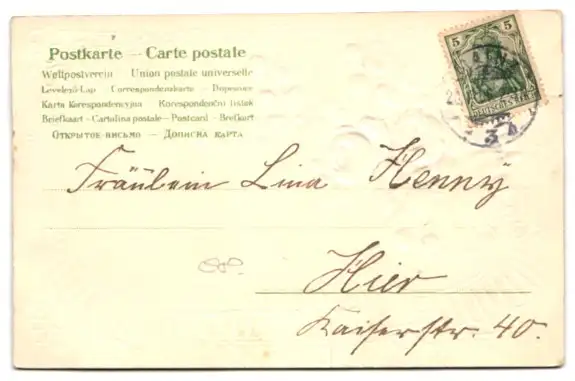 Postkarte — Carte postale
Weltpostverein — Union postale universelle
Levelező-Lap — Correspondenzkarte — Dopisnice
Karta Korespondencyjna — Korespondenční lístek
Briefkaart — Cartolina postale — Postcard — Brefkort
Открытое письмо — Дописна карта
5 5
DEUTSCHES REICH
3 A
Fräulein Lina Henny
Hier
Kaiserstr. 40.